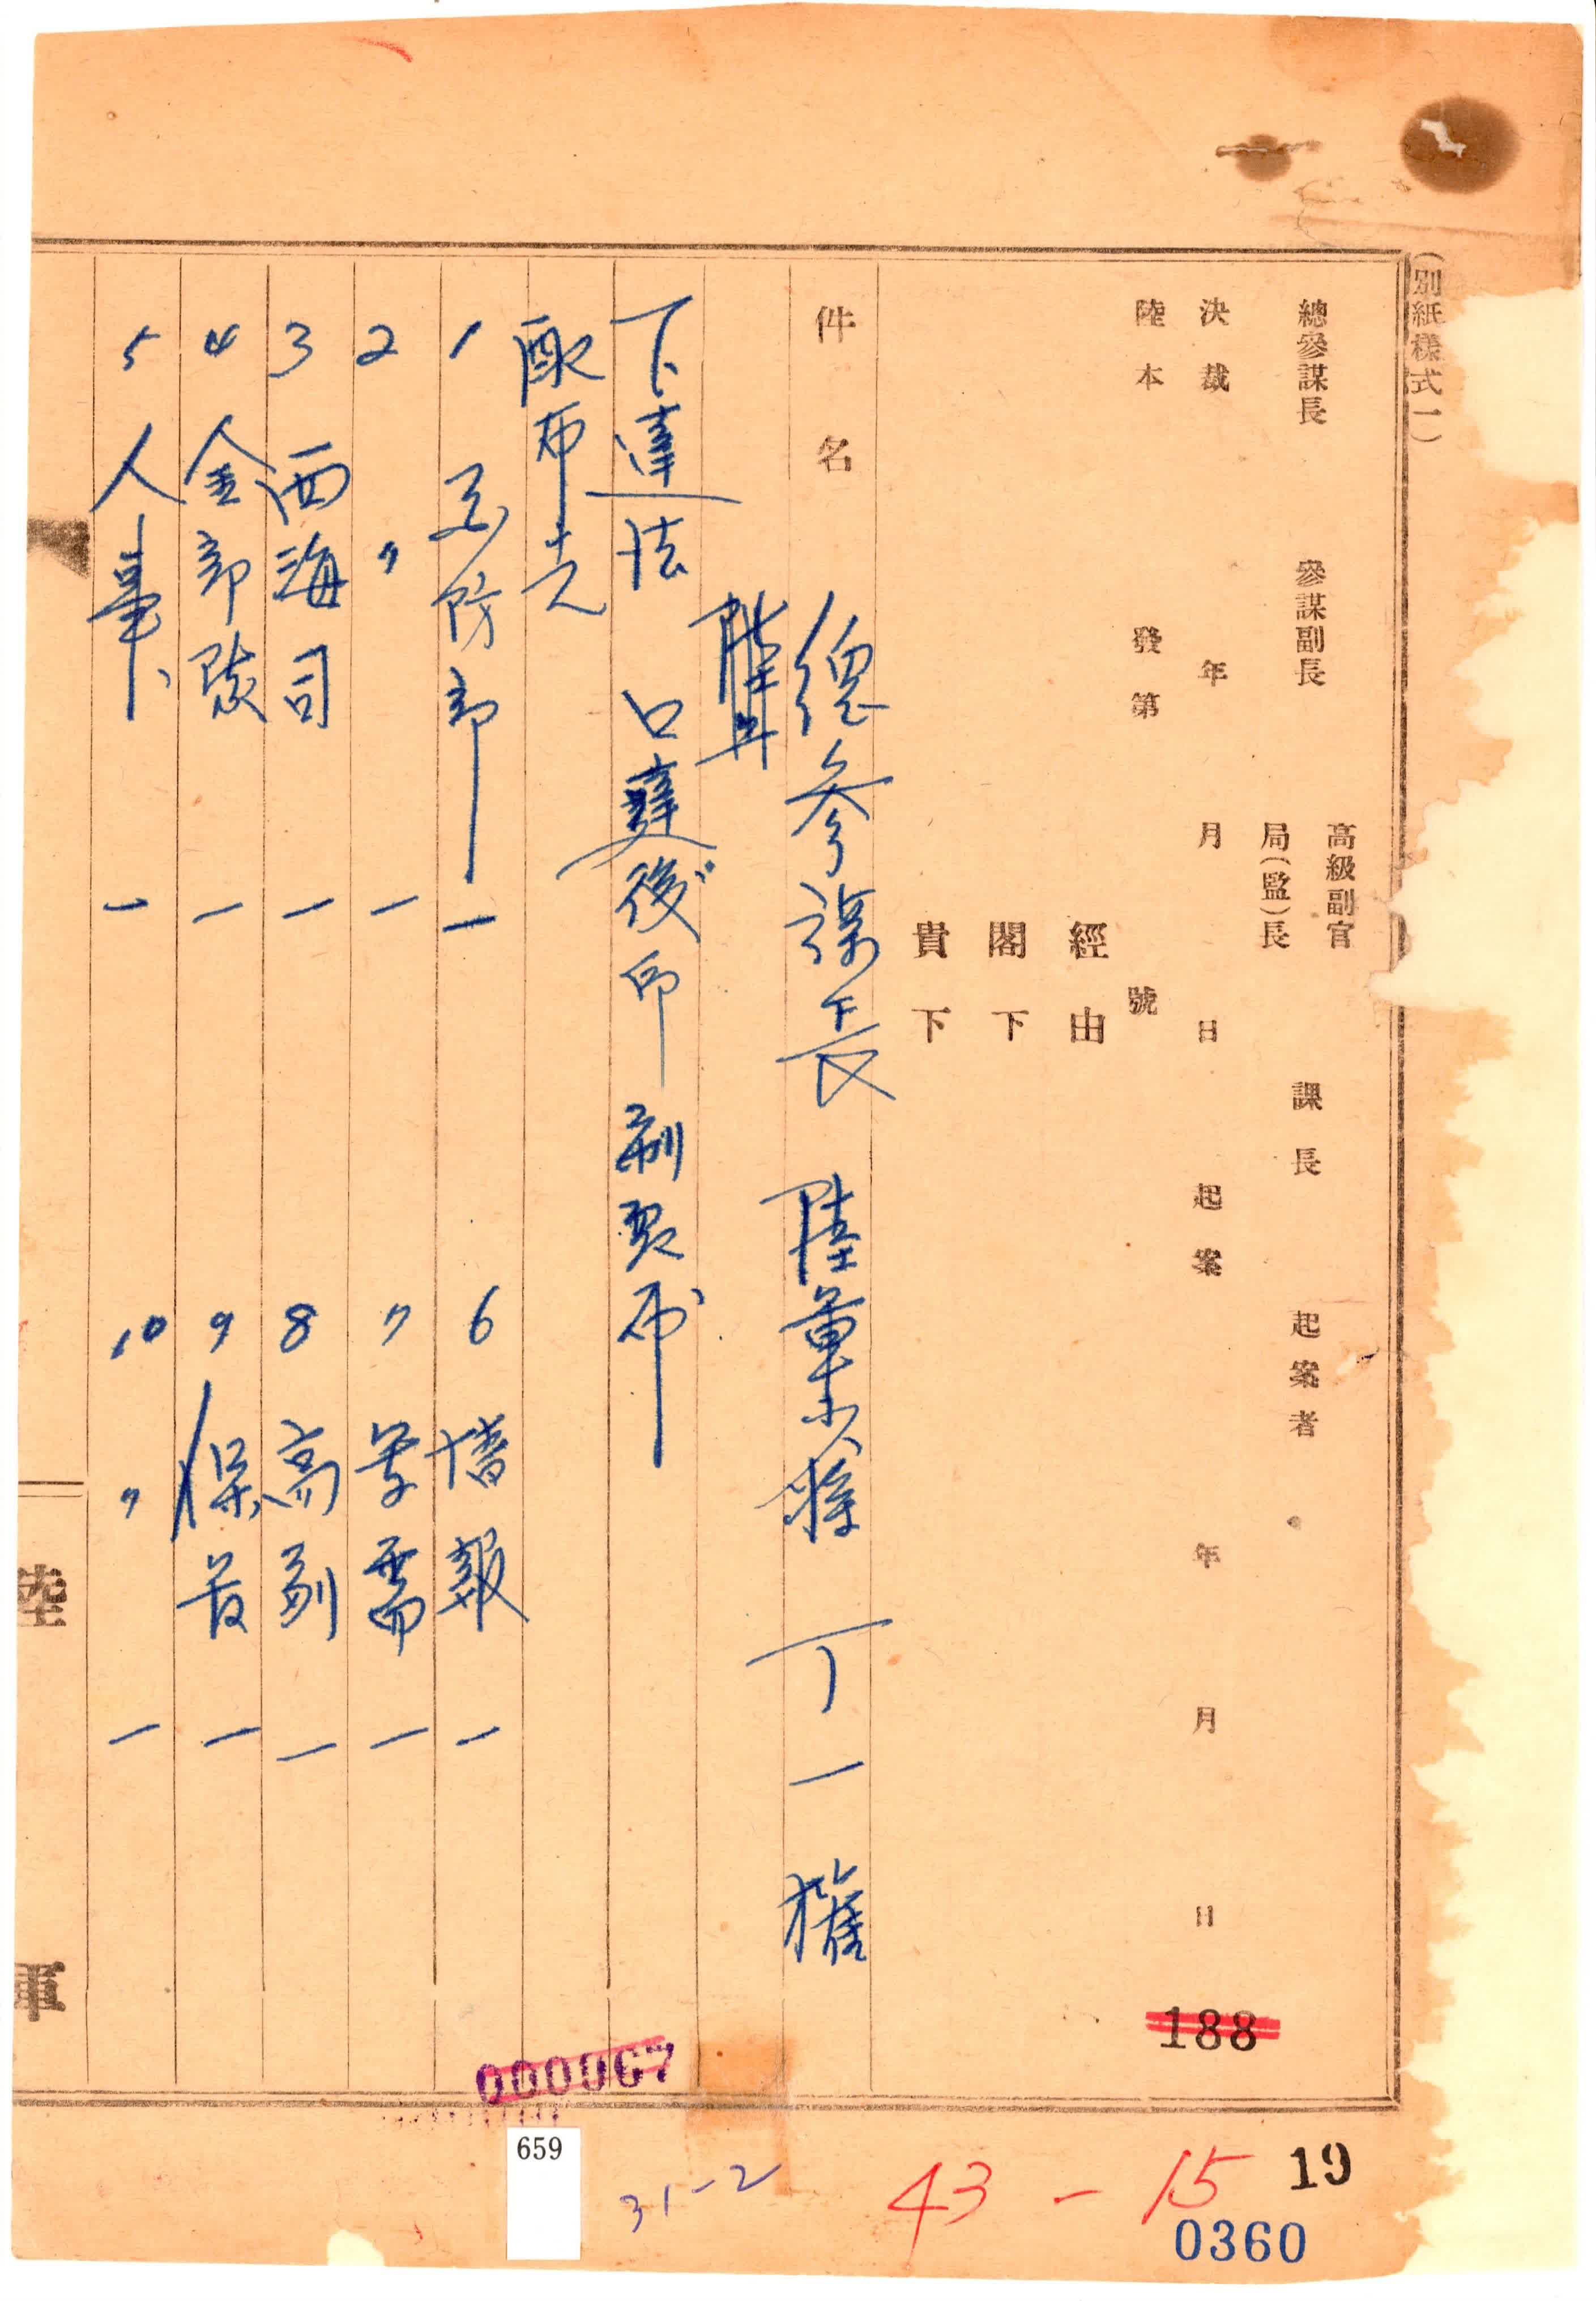 (別紙樣式一)
總參謀長 參謀副長 高級副官 局(監)長 課長 起案者
決裁 年 月 日 起案 年 月 日
陸本 發第 號
經由
閣下
貴下
件名
總參謀長 陸軍少將 丁一權
下達法 口達後印刷配布
配布先
1 국防部 一
2 〃 一
3 西海司 一
4 全部隊 一
5 人事 一
6 情報 一
7 軍需 一
8 高副 一
9 保管 一
10 〃 一
陸軍
188
000067
659
31-2
43-15
19
0360